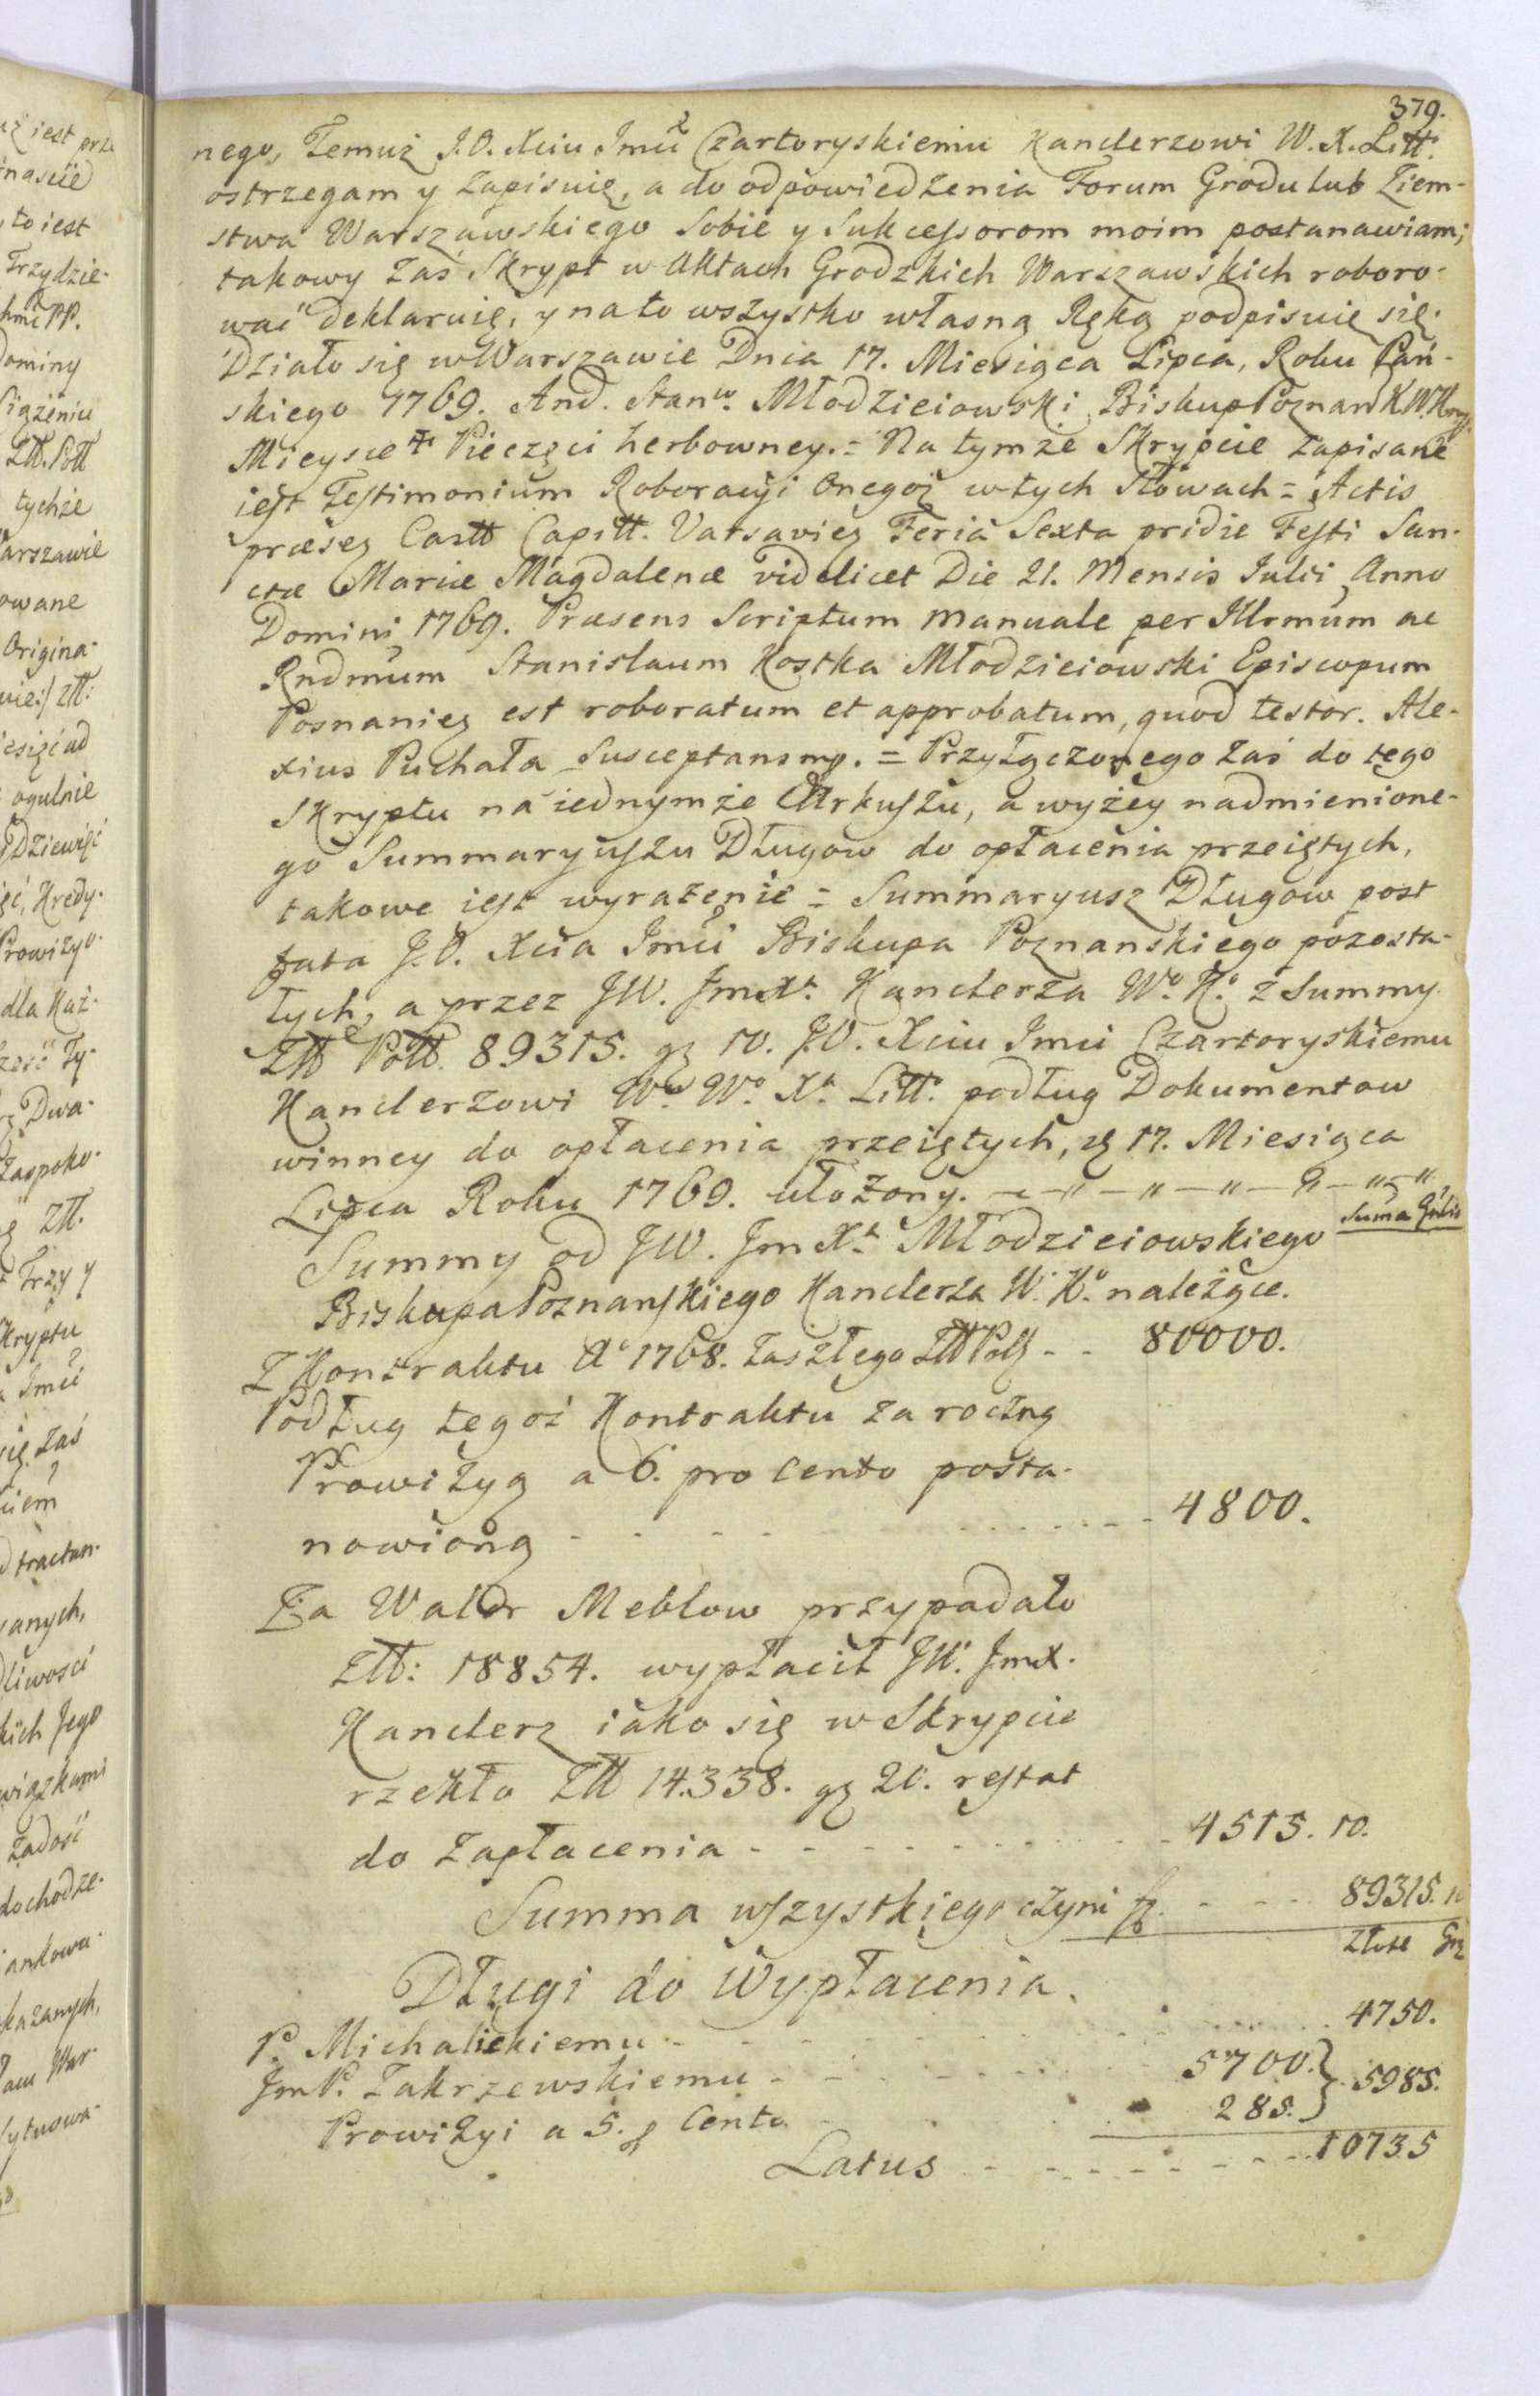 379.
nego, Temuż J.O. Xciu Jmci Czartoryskiemu Kanclerzowi W. X. Litt.
ostrzegam y zapisuię, a do odpowiedzenia Forum Grodu lub Ziem-
stwa Warszawskiego Sobie y Sukcessorom moim postanawiam;
takowy zaś Skrypt w Aktach Grodzkich Warszawskich roboro-
wać deklaruię, y na to wszystko własną Ręką podpisuię się.
Działo się w Warszawie Dnia 17. Miesiąca Lipca, Roku Pań-
skiego 1769. And. Stanw. Młodzieiowski Biskup Poznan K.W.Kor.
Mieysce Pieczęci herbowney. = Na tymże Skrypcie zapisane
iest Testimonium Roboracyi Onegoż w tych Słowach = Actis
præseq Castt Capitt. Varsavieq Feria Sexta pridie Festi San-
ctæ Mariæ Magdalenæ videlicet Die 21. Mensis Julii Anno
Domini 1769. Præsens Scriptum manuale per Illrmum ac
Rndmum Stanislaum Kostka Młodzieiowski Episcopum
Posnanieq est roboratum et approbatum, quod testor. Ale-
xius Puchała Susceptans mp. = Przyłączonego zaś do tego
Skryptu na iednymże Arkuszu, a wyżey nadmienione-
go Summaryuszu Długow do opłacenia przeiętych,
takowe iest wyrażenie = Summaryusz Długow post
fata J.O. Xcia Jmci Biskupa Poznanskiego pozosta-
łych, a przez JW. JmXa. Kanclerza Wo. Ko. z Summy
Ztt Poltt. 89315. gq 10. J.O. Xciu Jmci Czartoryskiemu
Kanclerzowi Wu. Wo. Xa. Litt. podług Dokumentow
winney do opłacenia przeiętych, 17. Miesiąca
Lipca Roku 1769. ułożony. - - " - " - " - " - " - "
Suma
Summy od JW. JmXa. Młodzieiowskiego
Biskupa Poznanskiego Kanclerza W. Ko. należące.
Z Kontraktu Ao 1768. zaszłego Ztt Polq - - 80000.
Podług tegoż Kontraktu za roczną
Prowizyą a 6. pro Cento posta-
nowioną - - - - - - - - 4800.
Za Walor Meblow przypadało
Ztt: 18854. wypłacił JW. JmX.
Kanclerz iako się w Skrypcie
rzekło Ztt 14338. gq 20. restat
do zapłacenia - - - - - - - 4515. 10.
Summa wszystkiego czyni - - - 89315. 10
Złote Gr
Długi do Wypłacenia.
P. Michalickiemu - - - - - - - 4750.
JmP. Zakrzewskiemu - - - - - 5700. } 5985.
Prowizyi a 5. p Cento - - - 285.
Latus - - - - - - - - 10735